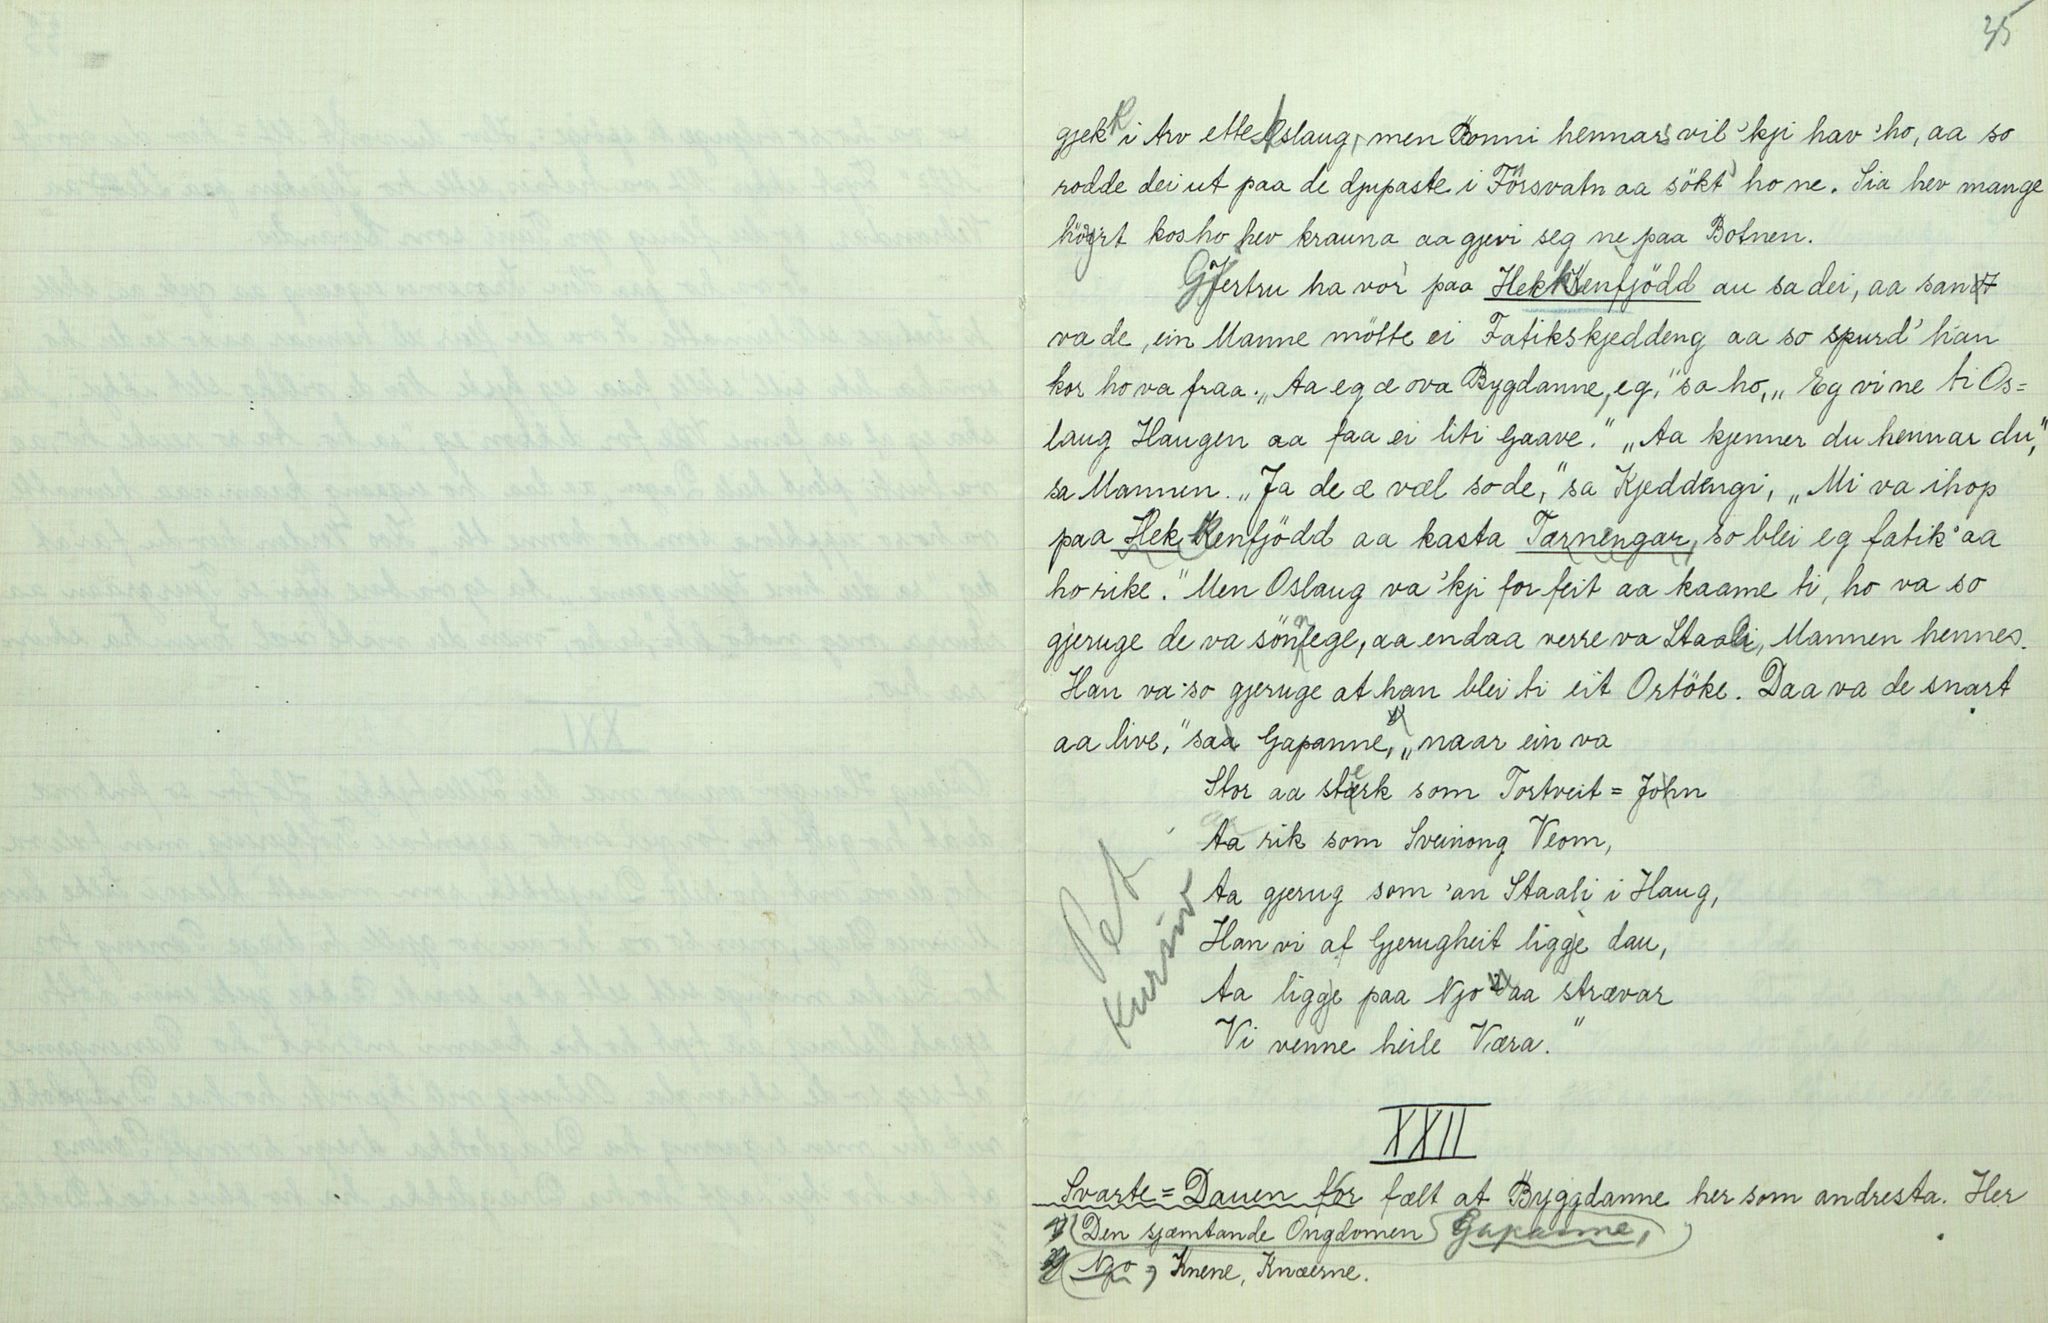 35
gjekk i Arv ette Oslaug, men Bonni hennars vil 'kji hav 'ho, aa so
rodde dei ut paa de djupaste i Försvatn aa sökt' ho ne. Sia hev mange
höyrt kos ho hev krauna aa gjevi seg ne paa Botnen.
Gjertru ha vor' paa Hekkenfjödd au sa dei, aa sant
va de, ein Manne mötte ei Fatikskjeddeng aa so spurd' han
kor ho va fraa. „Aa eg æ ova Bygdanne, eg," sa ho, „Eg vi ne ti Os=
laug Haugen aa faa ei liti Gaave." „Aa kjenner du hennar du,"
sa Mannen. „Ja de æ væl so de," sa Kjeddengi, „Mi va ihop
paa Hekkenfjödd aa kasta Tærnengar, so blei eg fatik aa
ho rike." Men Oslaug va 'kji for feit aa kaame ti, ho va so
gjeruge de va sönnlege, aa endaa verre va Staali, Mannen hennes.
Han va so gjeruge at han blei ti eit Ortöke. Daa va de snart
aa live," sa Gapanne, 1) „naar ein va
Stor aa sterk som Tortveit=John
Aa rik som Sveinong Veom,
Aa gjerug som 'an Staali i Haug,
Han vi af Gjerugheit ligge dau,
Aa ligge paa Njo 2) aa strævar
Vi venne heile Væra."
Pet
Kursiv
XXII
Svarte=Dauen for fælt at Byggdanne her som andresta. Her
1) Den sjæmtande Ongdomen Gapanne,
2) Njo = Knene, Knæerne.